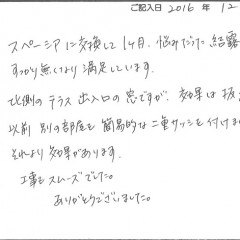 ご記入日 2016 年 12
スペーシアに交換して14日、悩みだった結露
すっかり無くなり満足しています。
北側のテラス出入口の窓ですが、効果は抜
以前別の部屋を簡易的な二重サッシを付けま
それより効果があります。
工事もスムーズでした。
ありがとうございました。